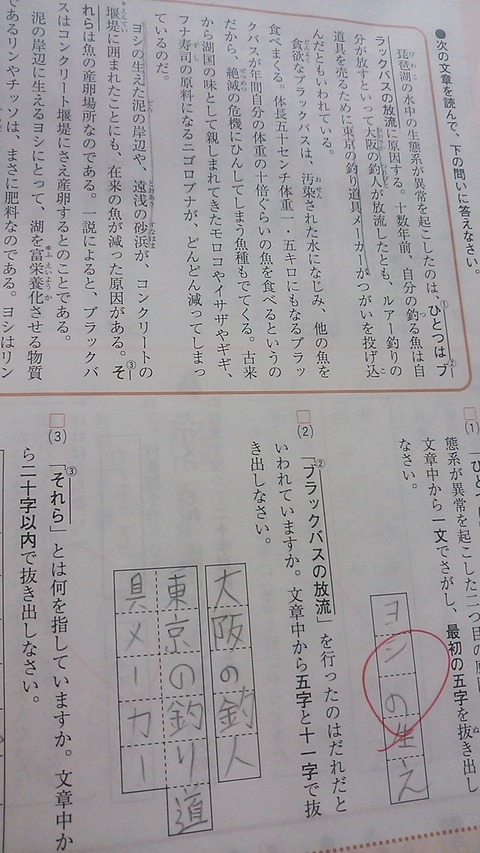 ●次の文章を読んで、下の問いに答えなさい。
琵琶湖の水中の生態系が異常を起こしたのは、ひとつはブ
ラックバスの放流に原因する。十数年前、自分の釣る魚は自
分が放すといって大阪の釣人が放流したとも、ルアー釣りの
道具を売るために東京の釣り道具メーカーがつがいを投げ込
んだともいわれている。
貪欲なブラックバスは、汚染された水になじみ、他の魚を
食べまくる。体長五十センチ体重一・五キロにもなるブラッ
クバスが年間自分の体重の十倍ぐらいの魚を食べるというの
だから、絶滅の危機にひんしてしまう魚種もでてくる。古来
から湖国の味として親しまれてきたモロコやイサザやギギ、
フナ寿司の原料になるニゴロブナが、どんどん減ってしまっ
ているのだ。
ヨシの生えた泥の岸辺や、遠浅の砂浜が、コンクリートの
堰堤に囲まれたことにも、在来の魚が減った原因がある。そ
れらは魚の産卵場所なのである。一説によると、ブラックバ
スはコンクリート堰堤にさえ産卵するとのことである。
泥の岸辺に生えるヨシにとって、湖を富栄養化させる物質
であるリンやチッソは、まさに肥料なのである。ヨシはリン
(1)
態系が異常を起こした二つ目の原因
文章中から一文でさがし、最初の五字を抜き出し
なさい。
ヨシの生え
(2)
②「ブラックバスの放流」を行ったのはだれだと
いわれていますか。文章中から五字と十一字で抜
き出しなさい。
大阪の釣人
東京の釣り道
具メーカー
(3)
③「それら」とは何を指していますか。文章中か
ら二十字以内で抜き出しなさい。